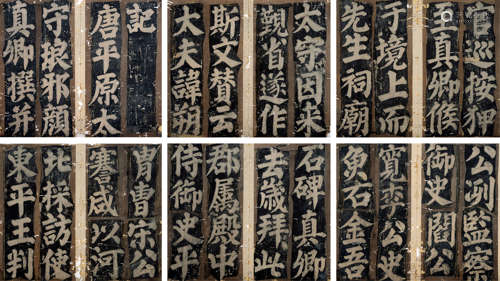 記
唐平原太
守琅邪顏
真卿撰并
太守因来
覲省遂作
斯文贊云
大夫諱朔
官巡按狎
至真卿候
于境上而
先生祠廟
胄曹宋公
謇咸以河
北採訪使
東平王判
石碑真卿
去歲拜此
郡属殿中
侍御史平
公冽監察
御史閻公
寬李公史
魚右金吾